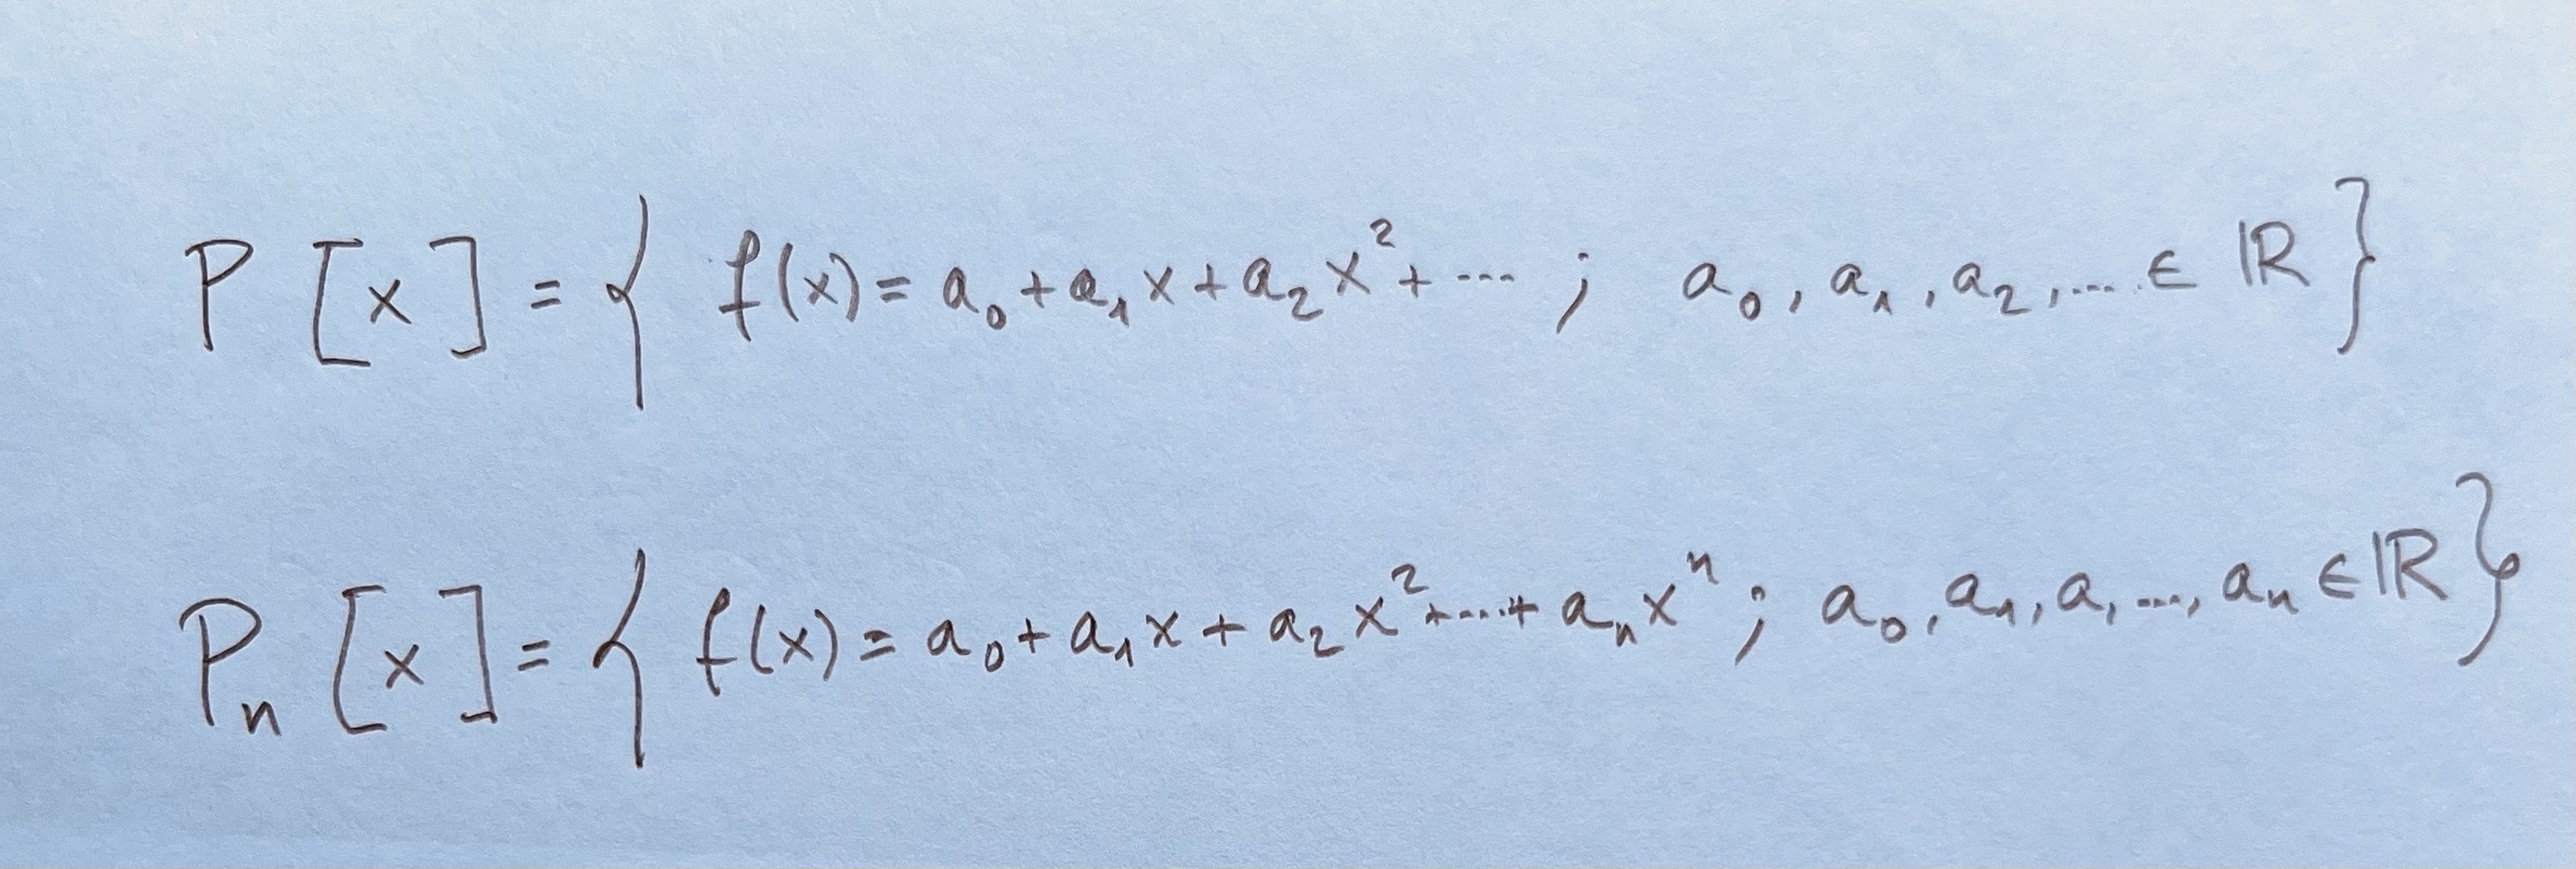 P[x] = { f(x) = a₀ + a₁x + a₂x² + ... ; a₀, a₁, a₂, ... ∈ ℝ }
Pₙ[x] = { f(x) = a₀ + a₁x + a₂x² + ... + aₙxⁿ ; a₀, a₁, a, ..., aₙ ∈ ℝ }